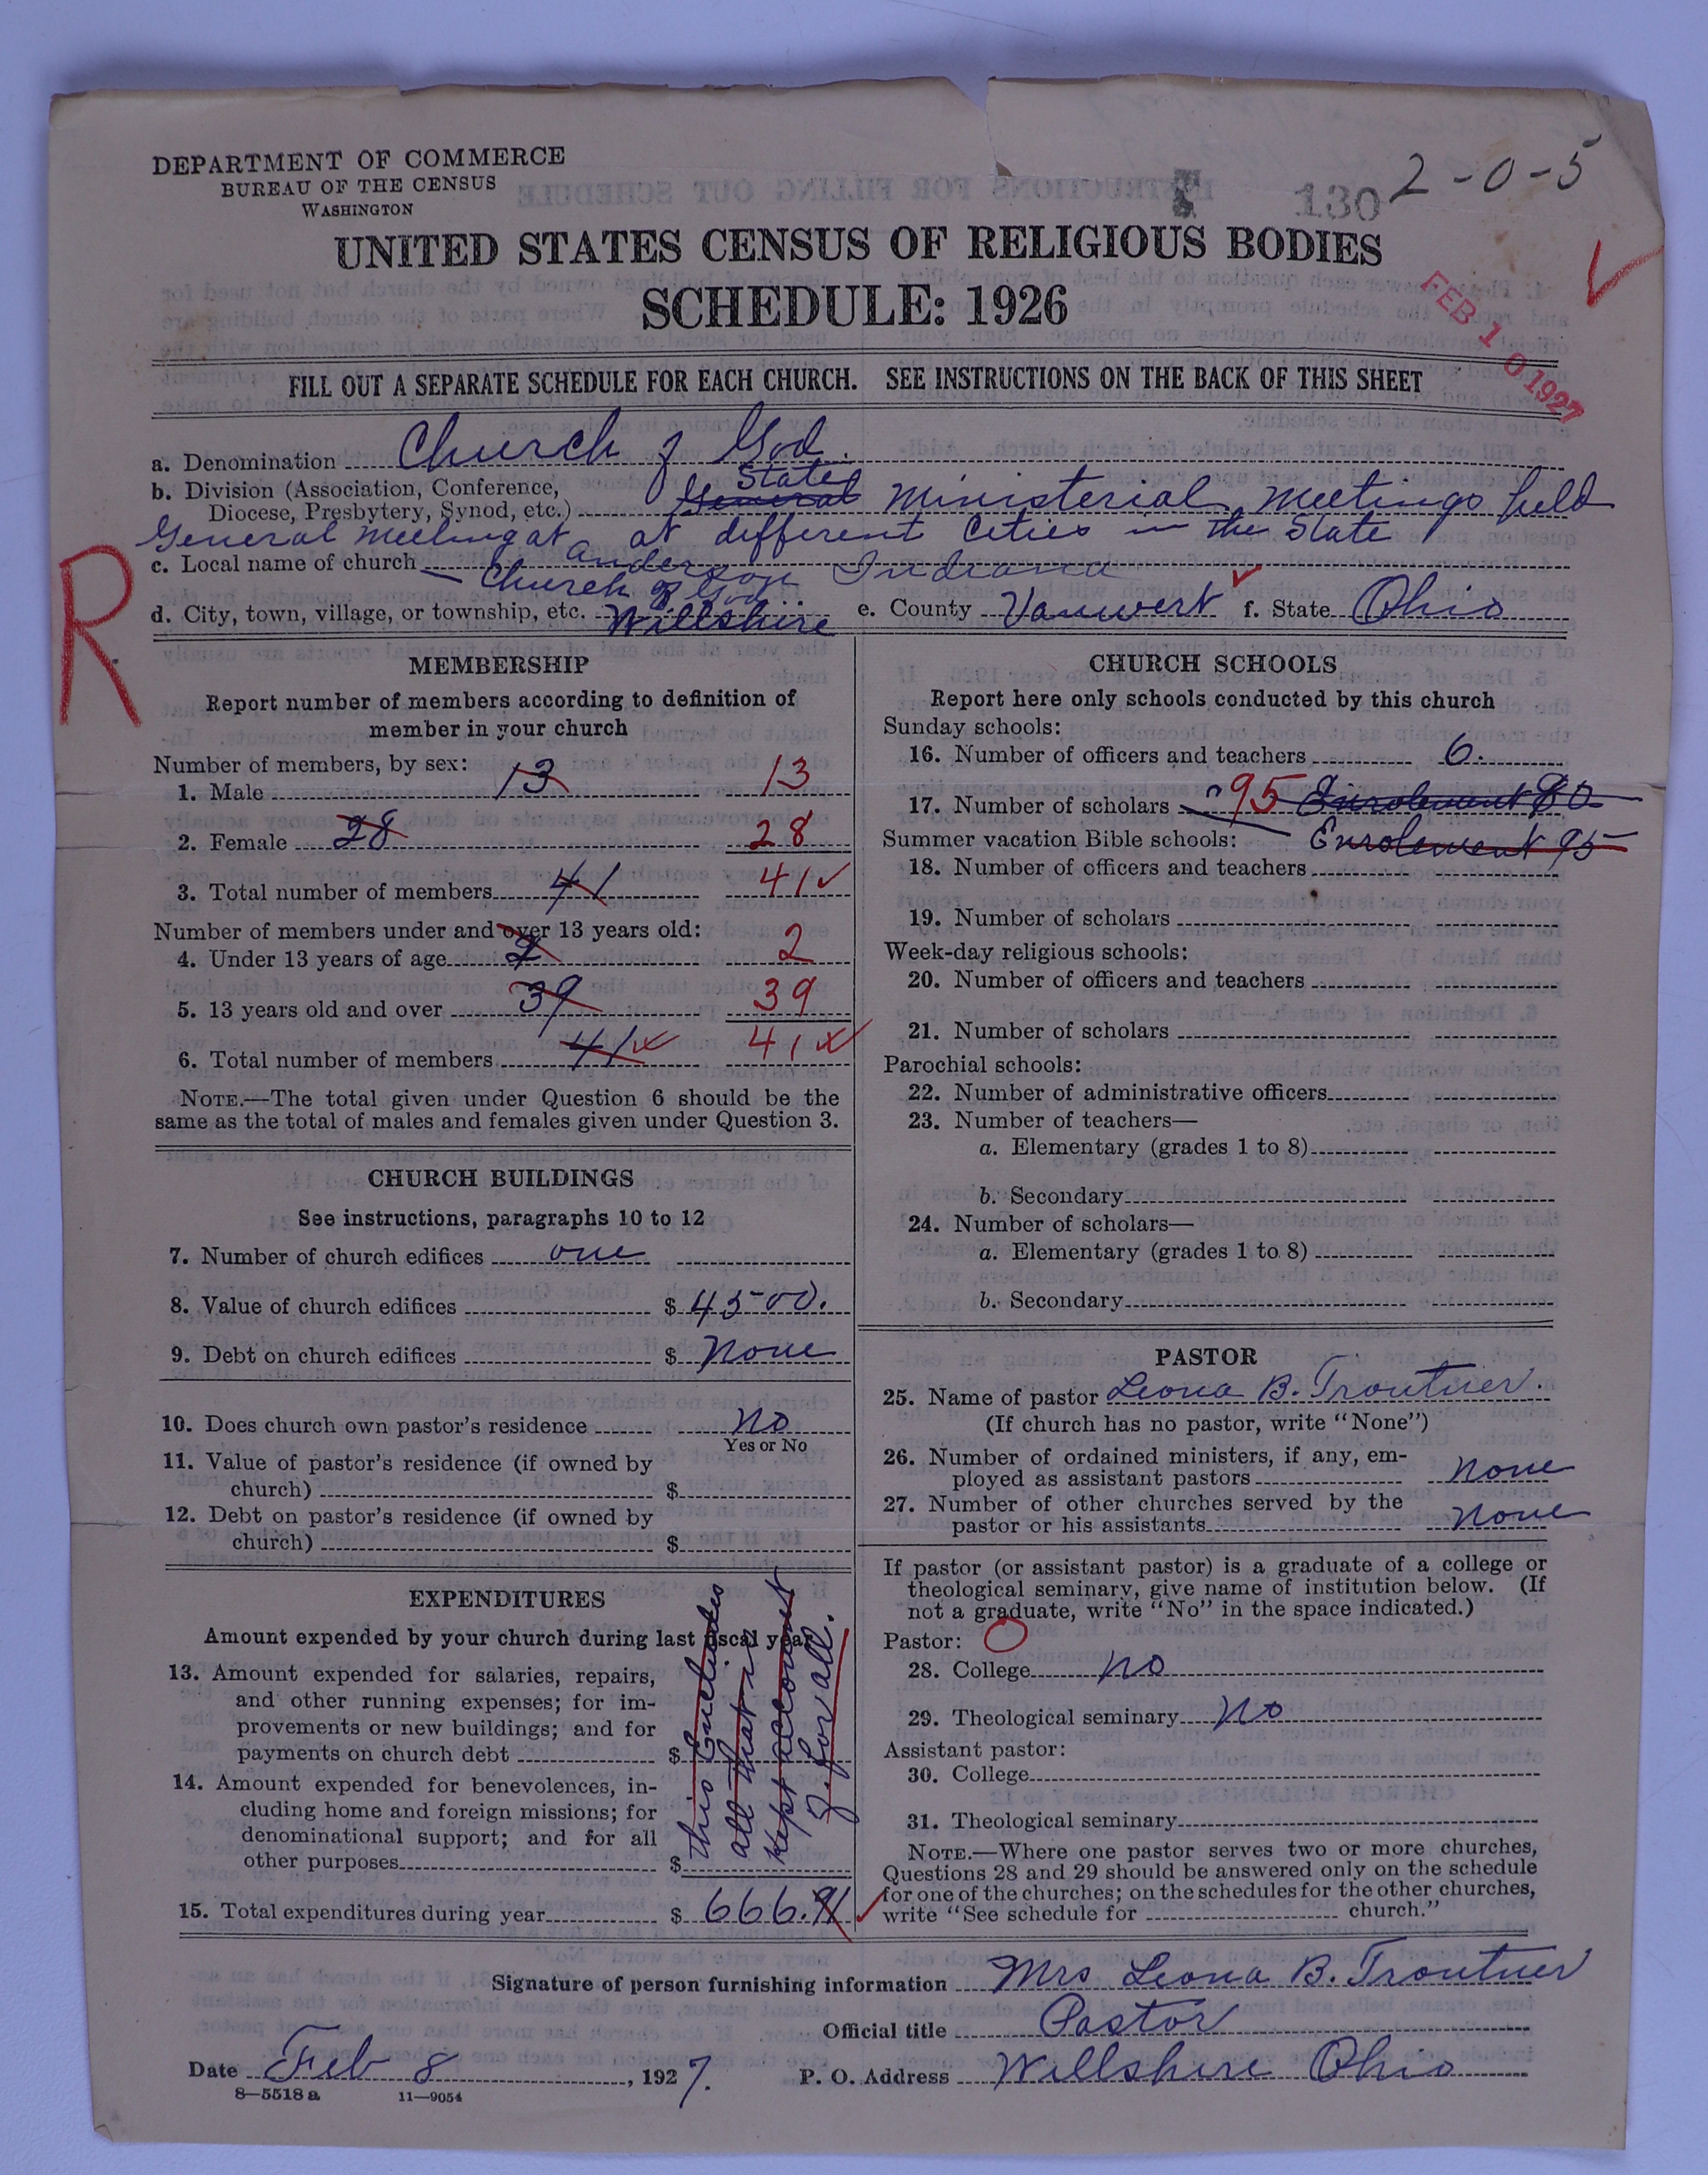 DEPARTMENT OF COMMERCE
BUREAU OF THE CENSUS
WASHINGTON
130
2-0-5
UNITED STATES CENSUS OF RELIGIOUS BODIES
SCHEDULE: 1926
FEB 10 1927
FILL OUT A SEPARATE SCHEDULE FOR EACH CHURCH. SEE INSTRUCTIONS ON THE BACK OF THIS SHEET
a. Denomination Church of God.
State
b. Division (Association, Conference,
Diocese, Presbytery, Synod, etc.) General Ministerial Meetings held
General Meeting at at different Cities in the State
Anderson Indiana
c. Local name of church Church of God
d. City, town, village, or township, etc. Willshire e. County Vanwert f. State Ohio
R
MEMBERSHIP
Report number of members according to definition of
member in your church
Number of members, by sex:
1. Male 13 13
2. Female 28 28
3. Total number of members 41 41
Number of members under and over 13 years old:
4. Under 13 years of age 2 2
5. 13 years old and over 39 39
6. Total number of members 41 41
NOTE.—The total given under Question 6 should be the
same as the total of males and females given under Question 3.
CHURCH BUILDINGS
See instructions, paragraphs 10 to 12
7. Number of church edifices one
8. Value of church edifices $ 4500.
9. Debt on church edifices $ none
10. Does church own pastor's residence no
Yes or No
11. Value of pastor's residence (if owned by
church) $
12. Debt on pastor's residence (if owned by
church) $
EXPENDITURES
Amount expended by your church during last fiscal year
13. Amount expended for salaries, repairs,
and other running expenses; for im-
provements or new buildings; and for
payments on church debt $
14. Amount expended for benevolences, in-
cluding home and foreign missions; for
denominational support; and for all
other purposes $
this Includes
all that is
kept account
of for all.
15. Total expenditures during year $ 666.91
CHURCH SCHOOLS
Report here only schools conducted by this church
Sunday schools:
16. Number of officers and teachers 6.
17. Number of scholars 95 Enrolement 80
Enrolement 95
Summer vacation Bible schools:
18. Number of officers and teachers
19. Number of scholars
Week-day religious schools:
20. Number of officers and teachers
21. Number of scholars
Parochial schools:
22. Number of administrative officers
23. Number of teachers—
a. Elementary (grades 1 to 8)
b. Secondary
24. Number of scholars—
a. Elementary (grades 1 to 8)
b. Secondary
PASTOR
25. Name of pastor Leona B. Troutner.
(If church has no pastor, write "None")
26. Number of ordained ministers, if any, em-
ployed as assistant pastors none
27. Number of other churches served by the
pastor or his assistants none
If pastor (or assistant pastor) is a graduate of a college or
theological seminary, give name of institution below. (If
not a graduate, write "No" in the space indicated.)
Pastor: O
28. College no
29. Theological seminary no
Assistant pastor:
30. College
31. Theological seminary
NOTE.—Where one pastor serves two or more churches,
Questions 28 and 29 should be answered only on the schedule
for one of the churches; on the schedules for the other churches,
write "See schedule for church."
Signature of person furnishing information Mrs Leona B. Troutner
Official title Pastor
Date Feb 8, 1927. P. O. Address Willshire Ohio
8—5518 a 11—9054